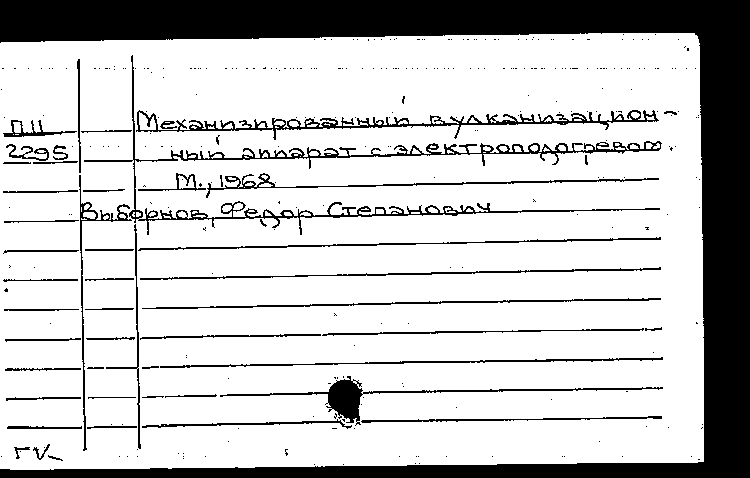 П11 Механизированный вулканизацион-
2295 ный аппарат с электроподогревом.
М., 1968
Выборнов, Федор Степанович